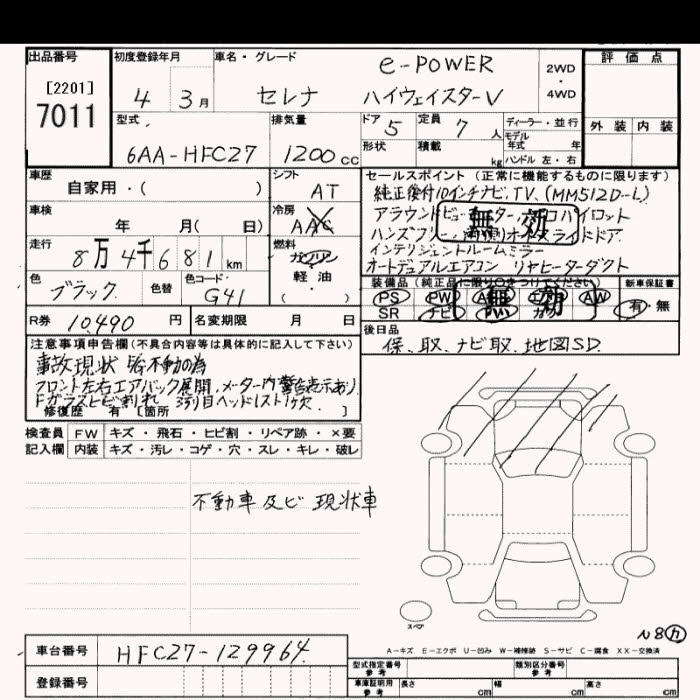 出品番号 初度登録年月 車名・グレード 評価点
[2201]
7011
4 3月 セレナ e-POWER ハイウェイスターV 2WD・4WD
型式 排気量 ドア 定員 ディーラー・並行 外装 内装
6AA-HFC27 1200cc 5 7人 モデル年式 年
形状 積載 kg ハンドル 左・右
車歴 シフト セールスポイント(正常に機能するものに限ります)
自家用・( ) AT 純正後付10インチナビ、TV、(MM512D-L)
車検 冷房 アラウンドビュー
年 月( 日) AAC 無効
ハンズフリー
走行 燃料 インテリジェントルームミラー
8万4千681km ガソリン 軽油 オートデュアルエアコン リヤヒーターダクト
色 色替 色コード・ 装備品(純正品に限り○をつけてください) 新車保証書
ブラック G41 PS PW 無効 AW 有・無
SR ナビ
R券 10,490円 名変期限 月 日 後日品
保、取、ナビ取、地図SD
注意事項申告欄(不具合内容等は具体的に記入して下さい)
事故現状 不動の為
フロント左右エアバック展開、メーター内警告表示あり
Fガラスヒビ割れ 3列目ヘッドレスト1ケ欠
修復歴 有[箇所 ]
検査員 FW キズ・飛石・ヒビ割・リペア跡・×要
記入欄 内装 キズ・汚レ・コゲ・穴・スレ・キレ・破レ
不動車及ビ現状車
スペア
N8カ
A-キズ E-エクボ U-凹み W-補修跡 S-サビ C-腐食 XX-交換済
車台番号 HFC27-129964 型式指定番号 参考 類別区分番号 参考
登録番号 車庫証明用 参考 長さ cm 幅 cm 高さ cm